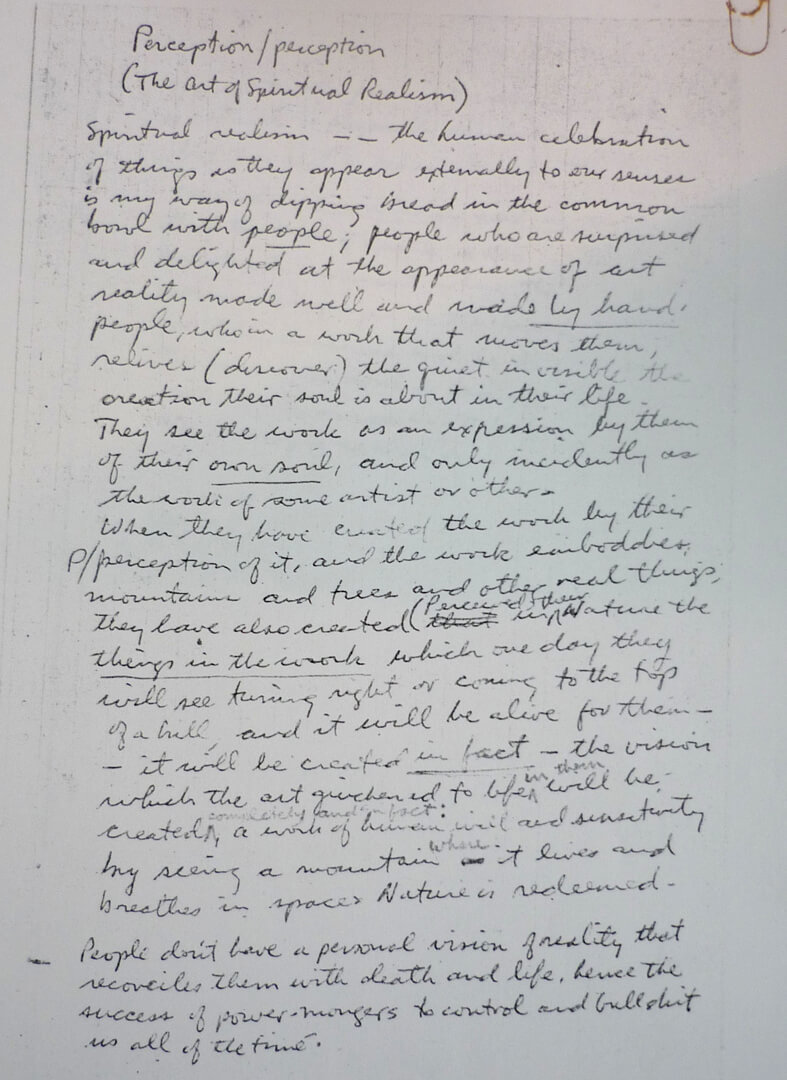 Perception/perception
(The art of Spiritual Realism)
Spiritual realism -- the human celebration
of things as they appear externally to our senses
is my way of dipping bread in the common
bowl with people; people who are surprised
and delighted at the appearance of art
reality made well and made by hand.
people, who in a work that moves them,
relives (discover) the quiet invisible the
creation their soul is about in their life.
They see the work as an expression by them
of their own soul, and only incidently as
the work of some artist or other.
When they have created the work by their
P/perception of it, and the work emboddies
mountains and trees and other real things,
they have also created (Perceived their
that in Nature the
things in the work which one day they
will see turning right or coming to the top
of a hill, and it will be alive for them -
- it will be created in fact - the vision
which the art quickened to life in them will be
created completely and in fact: a work of human will and sensitivity
by seeing a mountain where it lives and
breathes in space Nature is redeemed -
- People don't have a personal vision of reality that
reconciles them with death and life, hence the
success of power-mongers to control and bullshit
us all of the time.